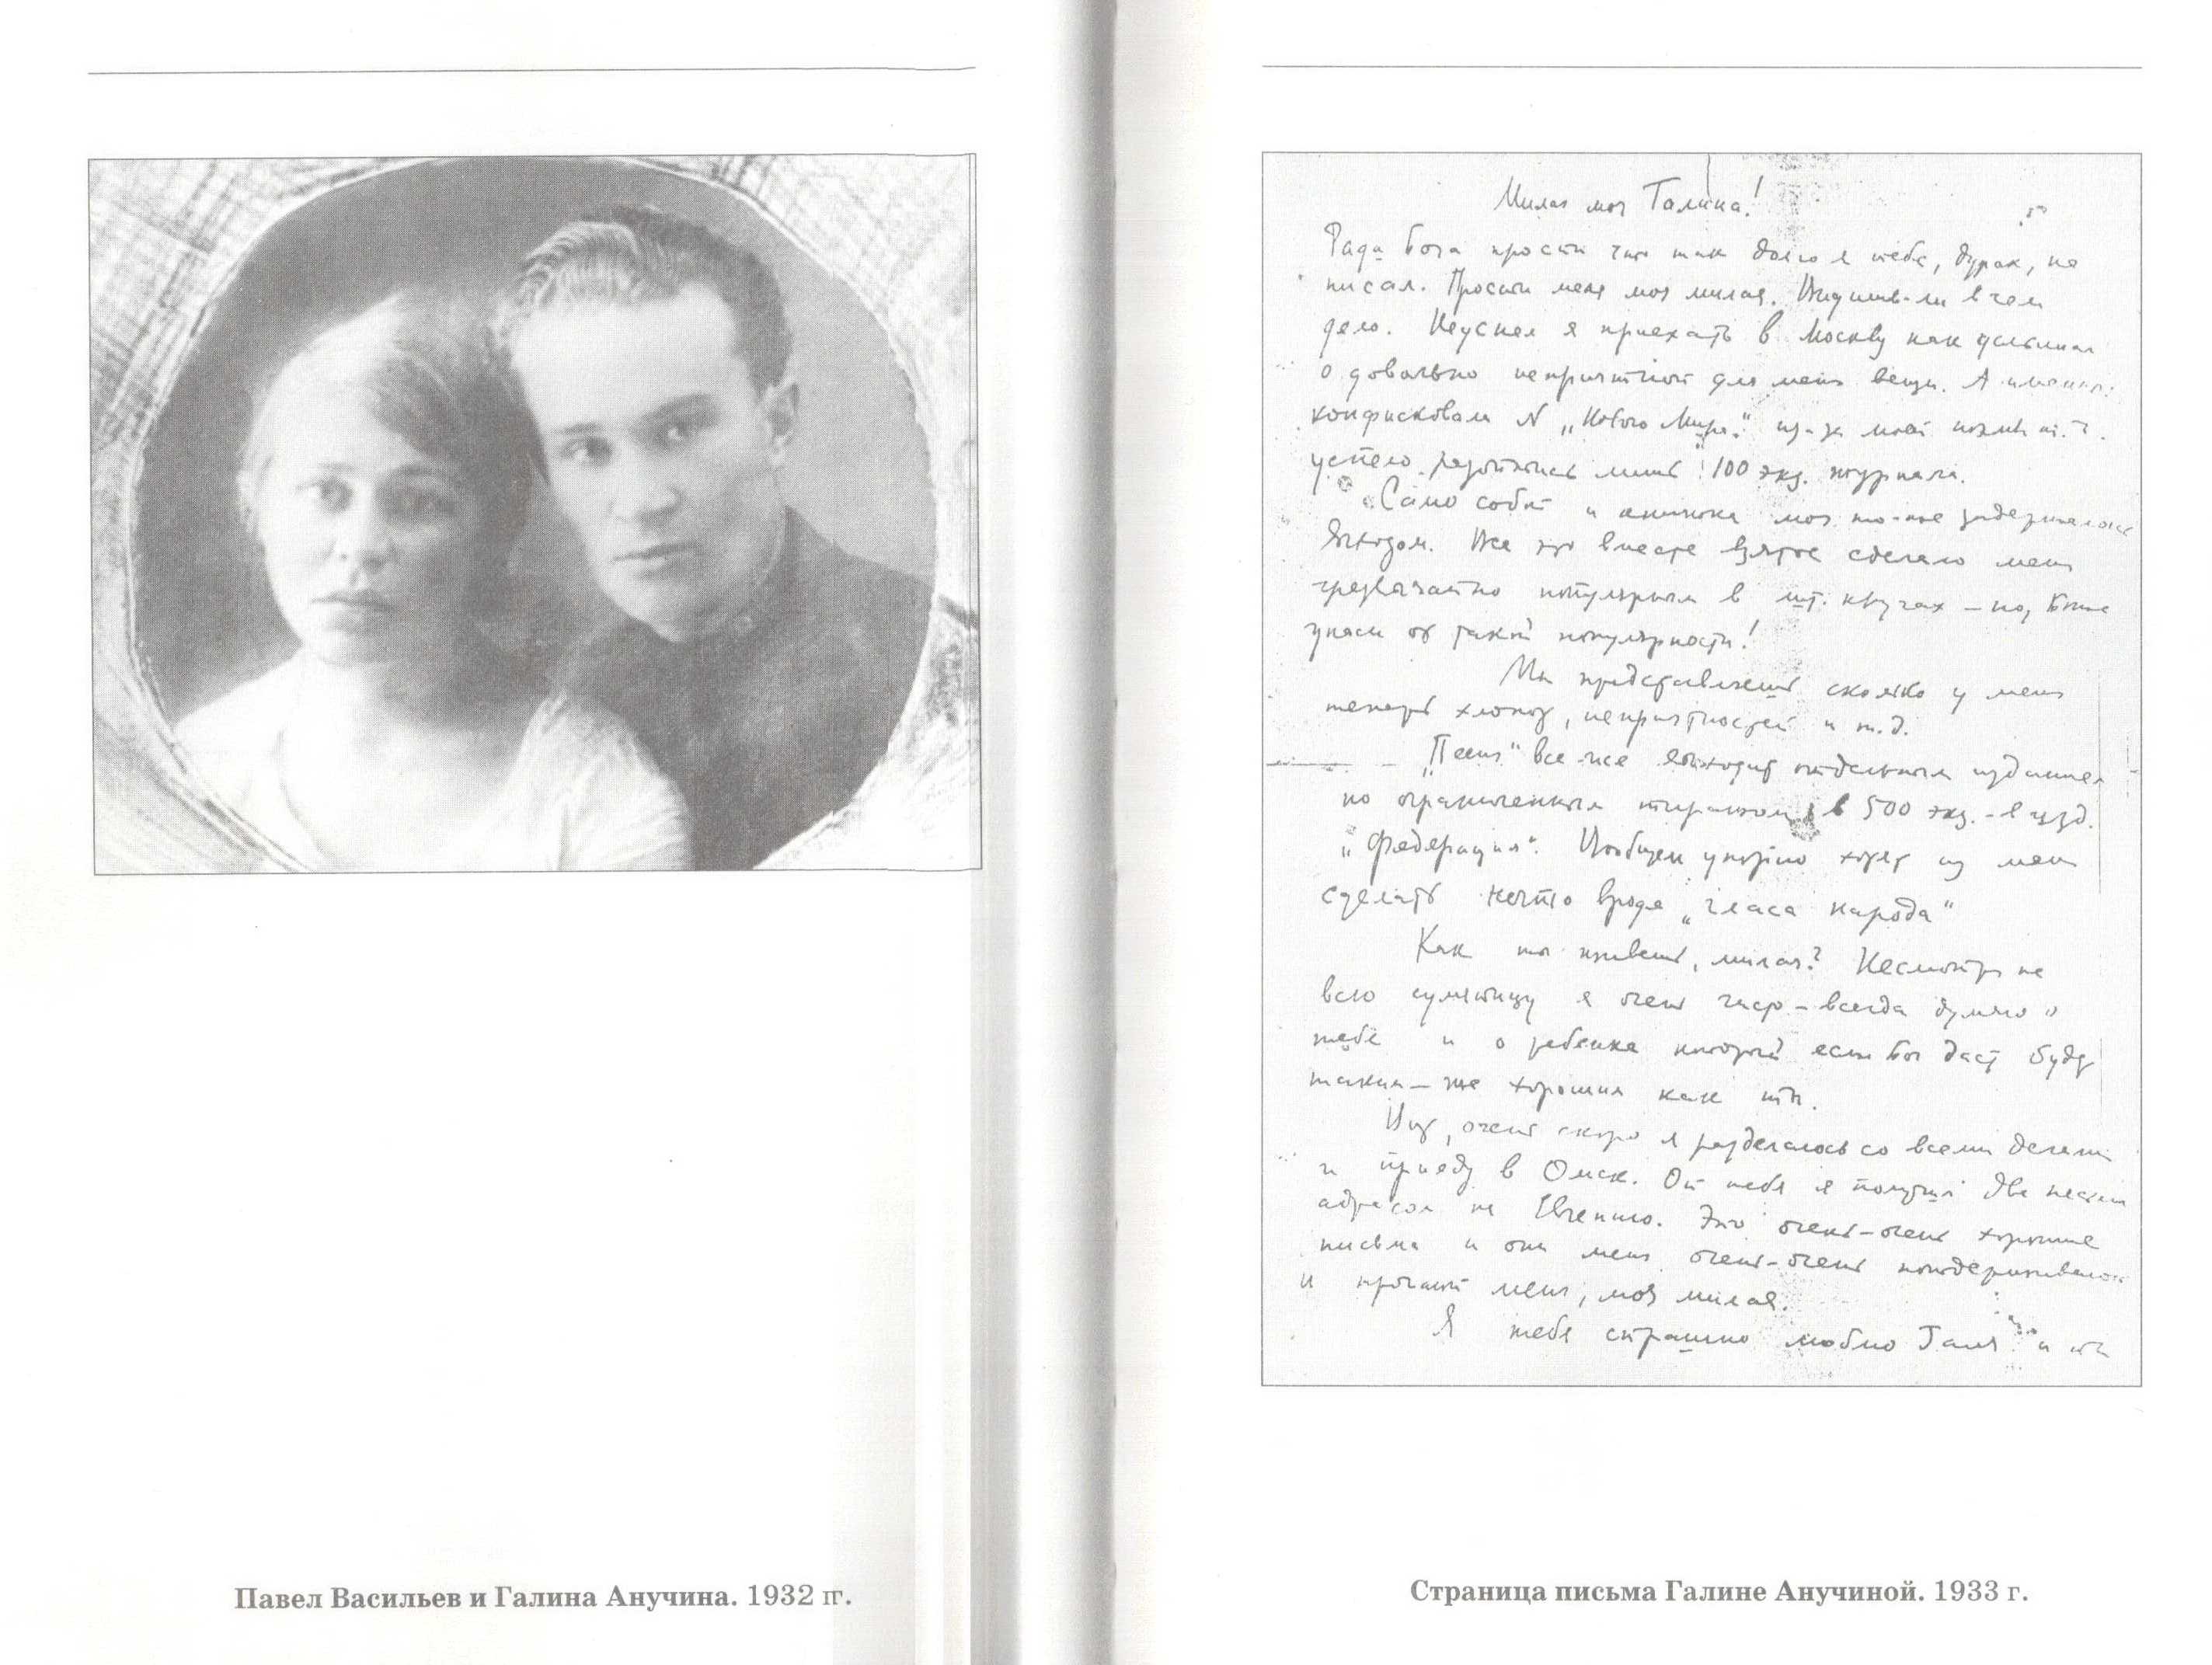 Павел Васильев и Галина Анучина. 1932 гг.
Милая моя Галина!
Ради бога прости что так долго я тебе, дурак, не
писал. Прости меня моя милая. Видишь-ли в чем
дело. Неуспел я приехать в Москву как услышал
о довольно неприятной для меня вещи. А именно:
конфисковали N „Нового Мира" из-за моей
успело разойтись лишь 100 экз. журнала.
Само собой и книжка моя то-же задержалась
выходом. Все это вместе взятое сделало меня
чрезвычайно популярным в лит. кругах – но, Боже
упаси от такой популярности!
Ты представляешь сколько у меня
теперь хлопот, неприятностей и т.д.
„Песня" все-же выходит отдельным изданием
но ограниченным тиражом в 500 экз. – в изд.
„Федерация". Вообщем упорно хотят из меня
сделать нечто вроде „гласа народа"
Как ты живешь, милая? Несмотря на
всю сумятицу я очень часто – всегда думаю о
тебе и о ребенке который если Бог даст будет
таким-же хорошим как ты.
Ну, очень скоро я разделаюсь со всеми делами
и приеду в Омск. От тебя я получил два письма
адресом на Евгению. Это очень-очень хорошие
письма и они меня очень-очень поддерживают
и меня, моя милая.
Я тебя страшно люблю Галя и ты
Страница письма Галине Анучиной. 1933 г.